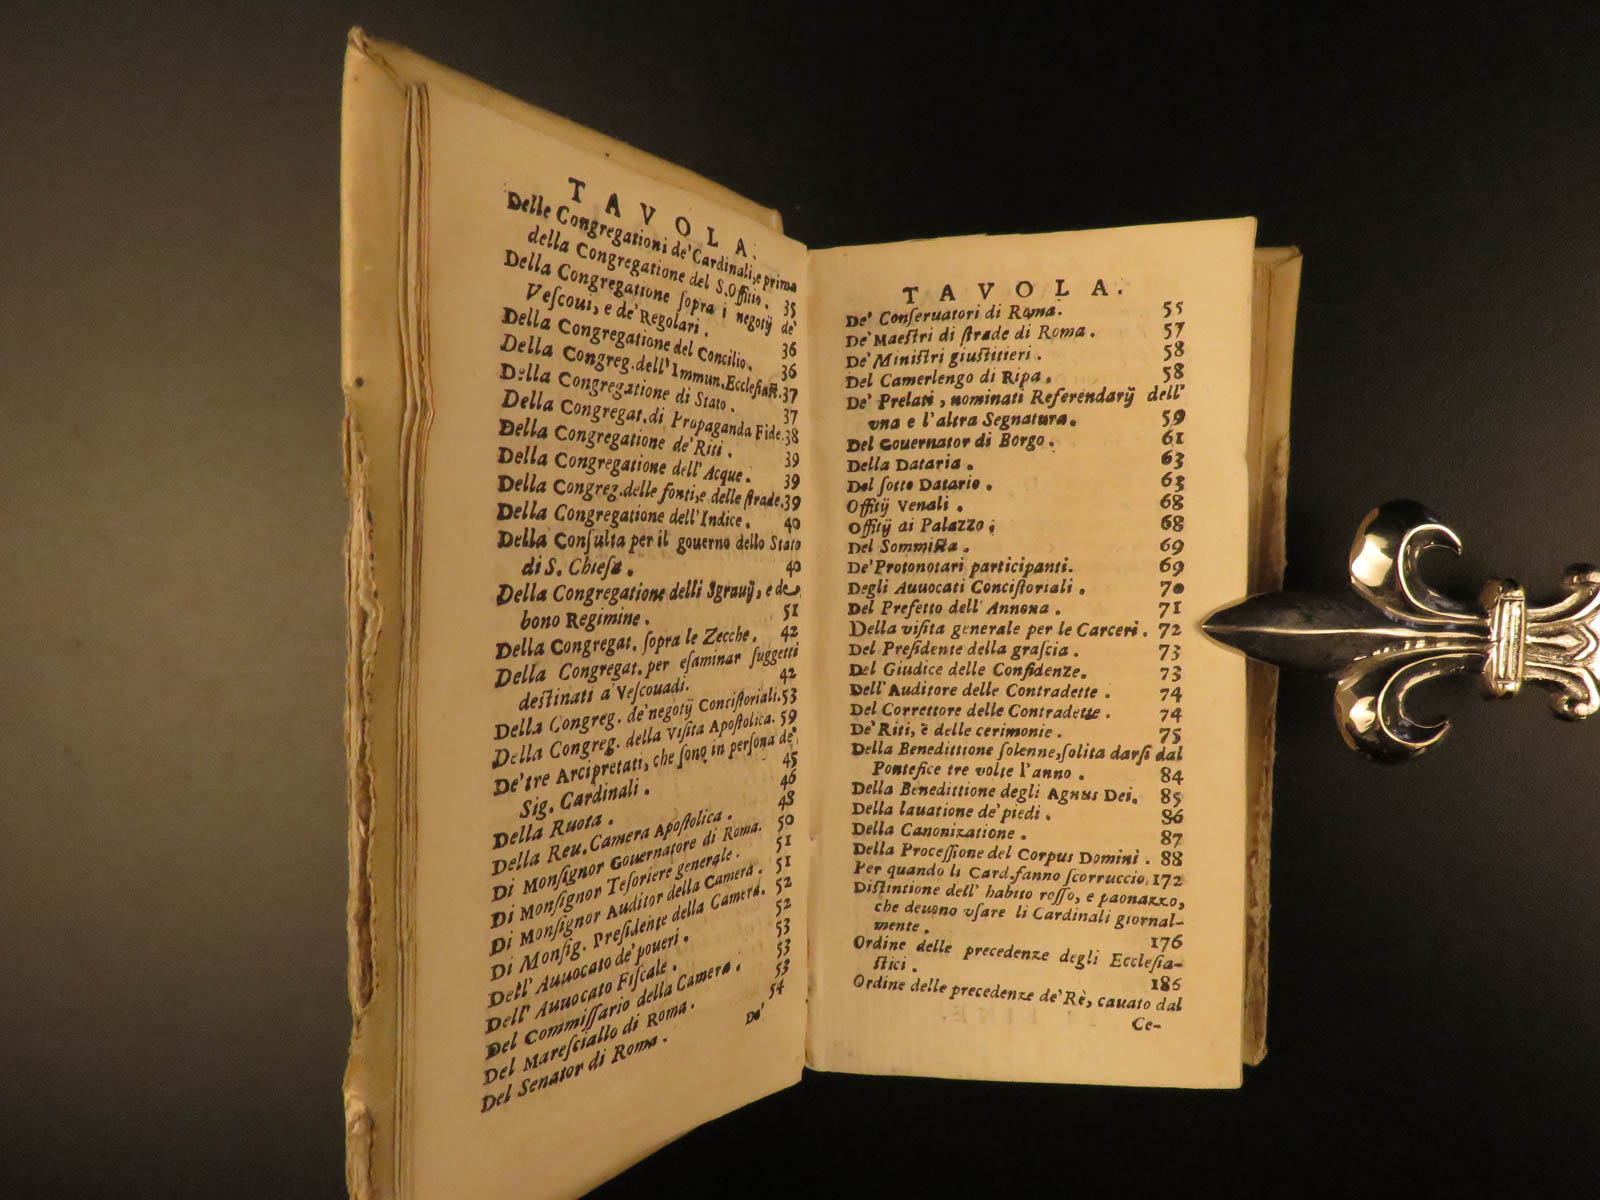 TAVOLA.
Delle Congregationi de' Cardinali, e prima
della Congregatione del S. Offitio. 35
Della Congregatione ſopra i negotij de'
Veſcoui, e de' Regolari. 36
Della Congregatione del Concilio. 36
Della Congreg. dell'Immun. Eccleſiaſt. 37
Della Congregatione di Stato. 37
Della Congregat. di Propaganda Fide. 38
Della Congregatione de' Riti. 39
Della Congregatione dell'Acque. 39
Della Congreg. delle fonti, e delle ſtrade. 39
Della Congregatione dell'Indice. 40
Della Conſulta per il gouerno dello Stato
di S. Chieſa. 40
Della Congregatione delli Sgrauij, e de
bono Regimine. 51
Della Congregat. ſopra le Zecche. 42
Della Congregat. per eſaminar ſuggetti
deſtinati a' Veſcouadi. 42
Della Congreg. de' negotij Conciſtoriali. 53
Della Congreg. della Viſita Apoſtolica. 59
De' tre Arcipretati, che ſono in perſona de'
Sig. Cardinali. 45
Della Ruota. 46
Della Reu. Camera Apoſtolica. 48
Di Monſignor Gouernatore di Roma. 50
Di Monſignor Teſoriere generale. 51
Di Monſignor Auditor della Camera. 51
Di Monſig. Preſidente della Camera. 52
Dell' Auuocato de' poueri. 52
Dell' Auuocato Fiſcale. 53
Del Commiſſario della Camera. 53
Del Mareſciallo di Roma. 53
Del Senator di Roma. 54
De'
TAVOLA.
De' Conſeruatori di Roma. 55
De' Maeſtri di ſtrade di Roma. 57
De' Miniſtri giuſtitieri. 58
Del Camerlengo di Ripa. 58
De' Prelati, nominati Referendarij dell'
vna e l'altra Segnatura. 59
Del Gouernator di Borgo. 61
Della Dataria. 63
Del ſotto Datario. 63
Offitij Venali. 68
Offitij di Palazzo. 68
Del Sommiſta. 69
De' Protonotari participanti. 69
Degli Auuocati Conciſtoriali. 70
Del Prefetto dell' Annona. 71
Della viſita generale per le Carceri. 72
Del Preſidente della graſcia. 73
Del Giudice delle Confidenze. 73
Dell'Auditore delle Contradette. 74
Del Correttore delle Contradette. 74
De' Riti, e delle cerimonie. 75
Della Benedittione ſolenne, ſolita darſi dal
Pontefice tre volte l'anno. 84
Della Benedittione degli Agnus Dei. 85
Della lauatione de' piedi. 86
Della Canonizatione. 87
Della Proceſſione del Corpus Domini. 88
Per quando li Card. fanno ſcorruccio. 172
Diſtintione dell' habito roſſo, e paonazzo,
che deuono vſare li Cardinali giornal-
mente. 176
Ordine delle precedenze degli Eccleſia-
ſtici. 186
Ordine delle precedenze de' Rè, cauato dal
Ce-